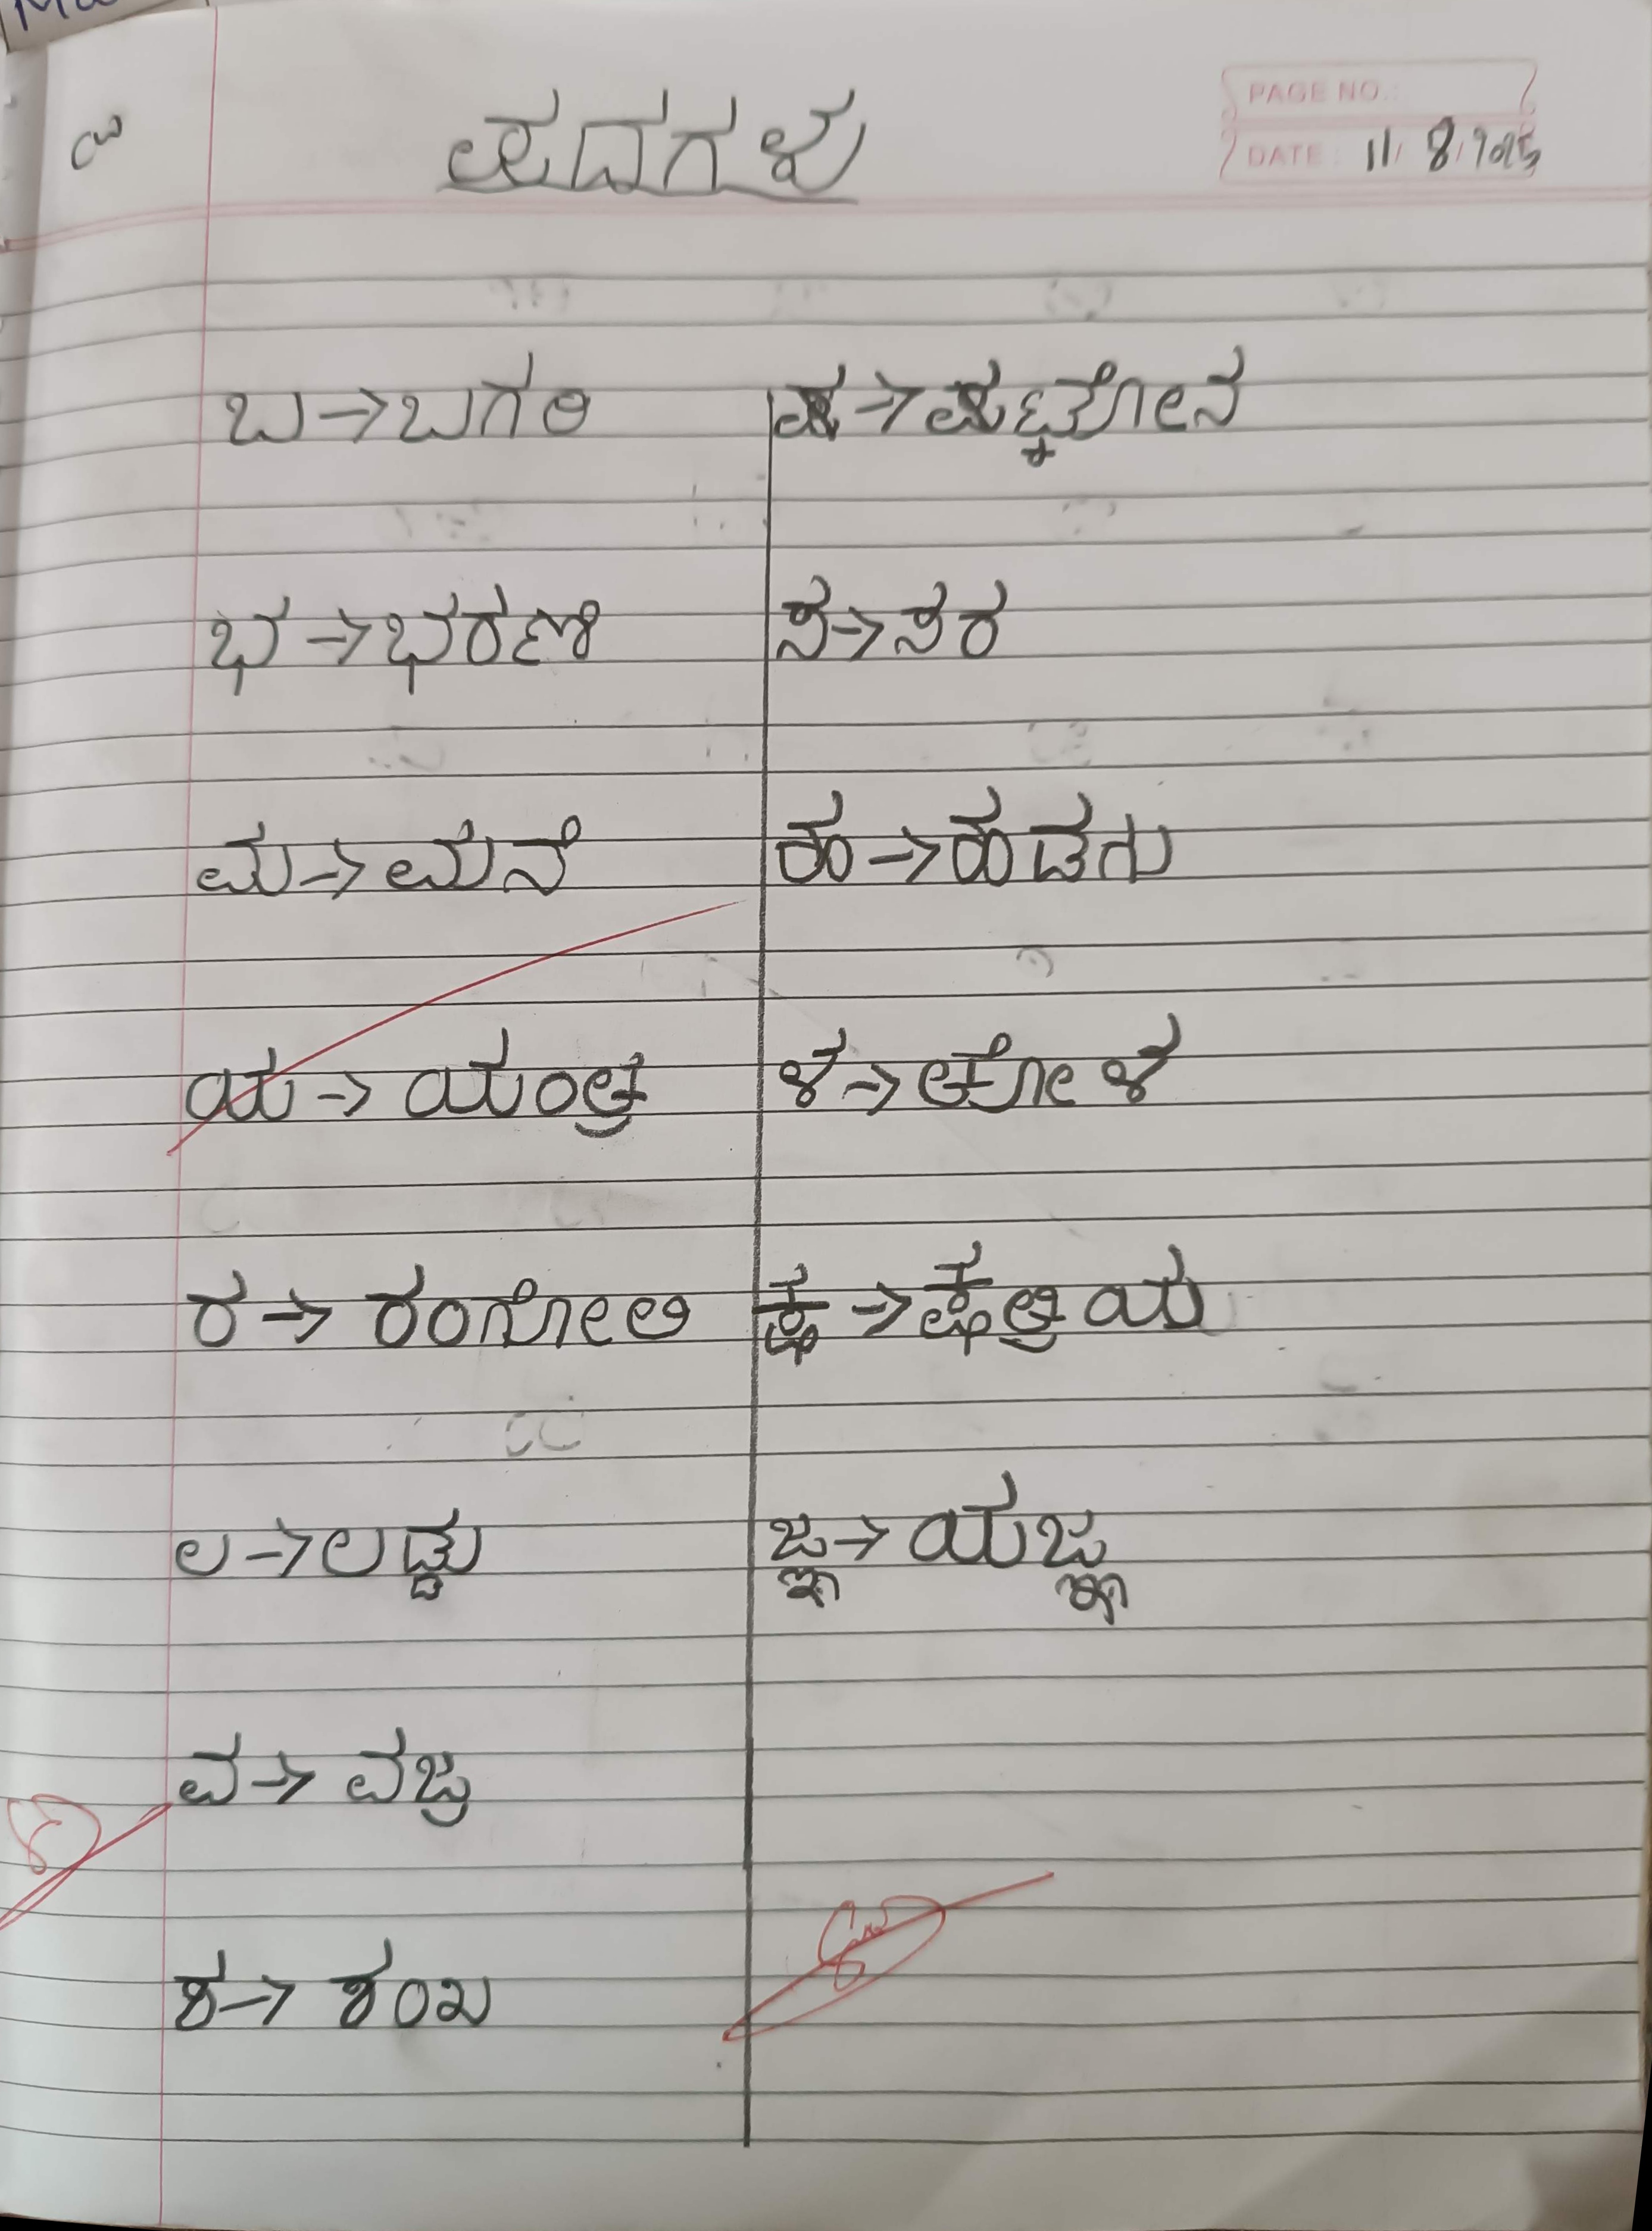 ೩
ಪದಗಳು
PAGE NO.:
DATE: 11/8/2025
ಬ → ಬಗರಿ
ಭ → ಭರಣಿ
ಮ → ಮನೆ
ಯ → ಯಂತ್ರ
ರ → ರಂಗೋಲಿ
ಲ → ಲಡ್ಡು
ವ → ವಜ್ರ
ಶ → ಶಂಖ
ಷ → ಷಟ್ಕೋನ
ಸ → ಸರ
ಹ → ಹಡಗು
ಳ → ಳ
ಕ್ಷ → ಕ್ಷತ್ರಿಯ
ಜ್ಞ → ಯಜ್ಞ